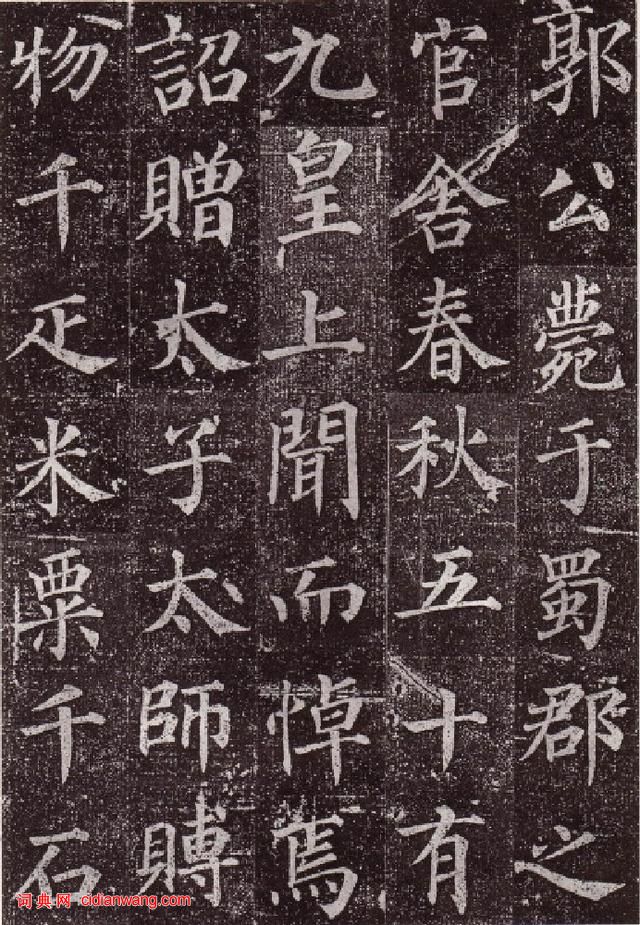 郭公薨于蜀郡之
官舍春秋五十有
九皇上聞而悼焉
詔贈太子太師賻
物千疋米粟千石
词典网 cidianwang.com